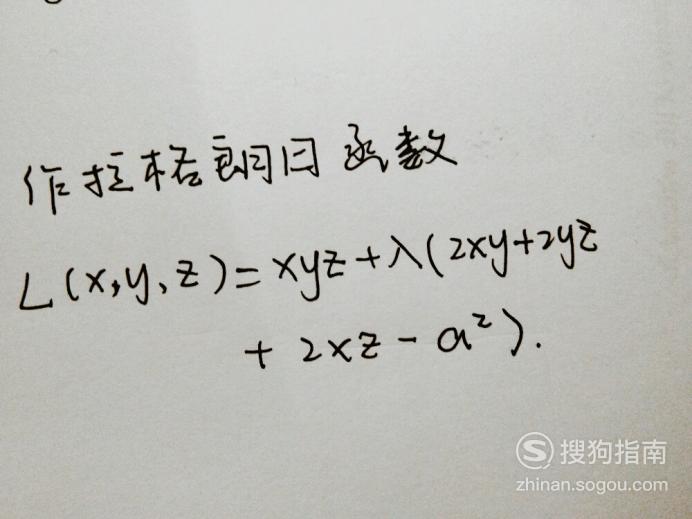 作拉格朗日函数
L(x,y,z)=xyz+λ(2xy+2yz
+2xz-a²).
S 搜狗指南
zhinan.sogou.com